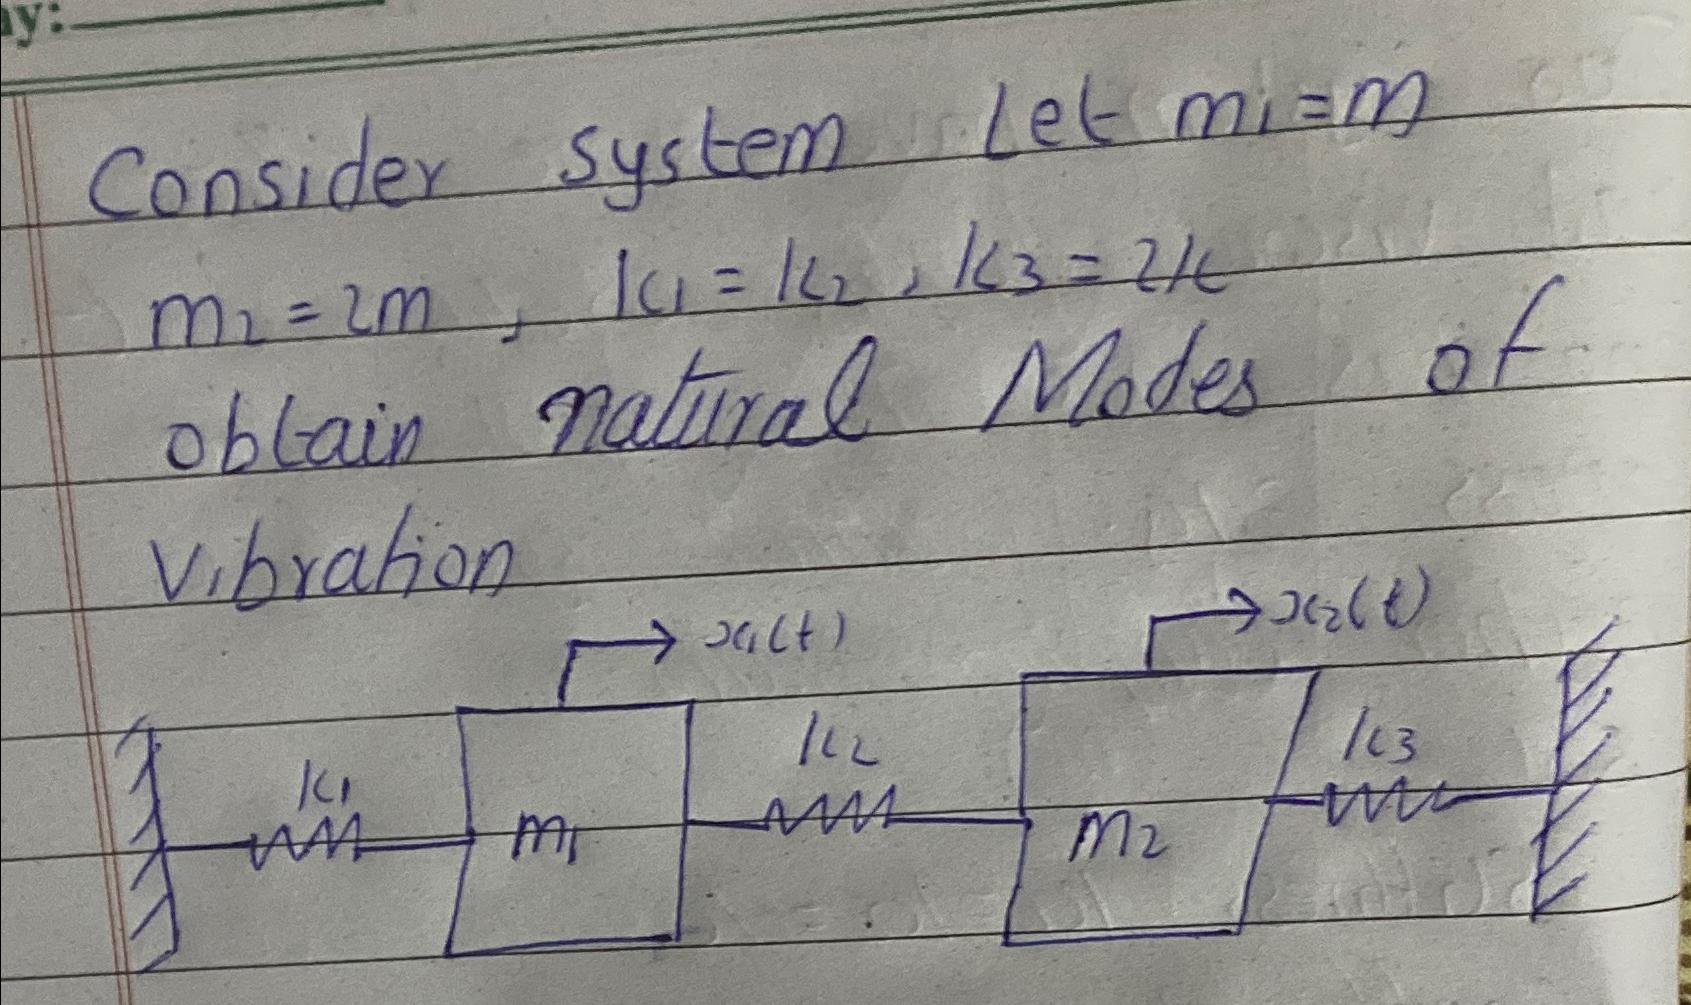 ay:
Consider system Let m1=m
m2=2m, k1=k2, k3=2k
obtain natural Modes of
Vibration
x1(t) x2(t)
k1 k2 k3
m1 m2